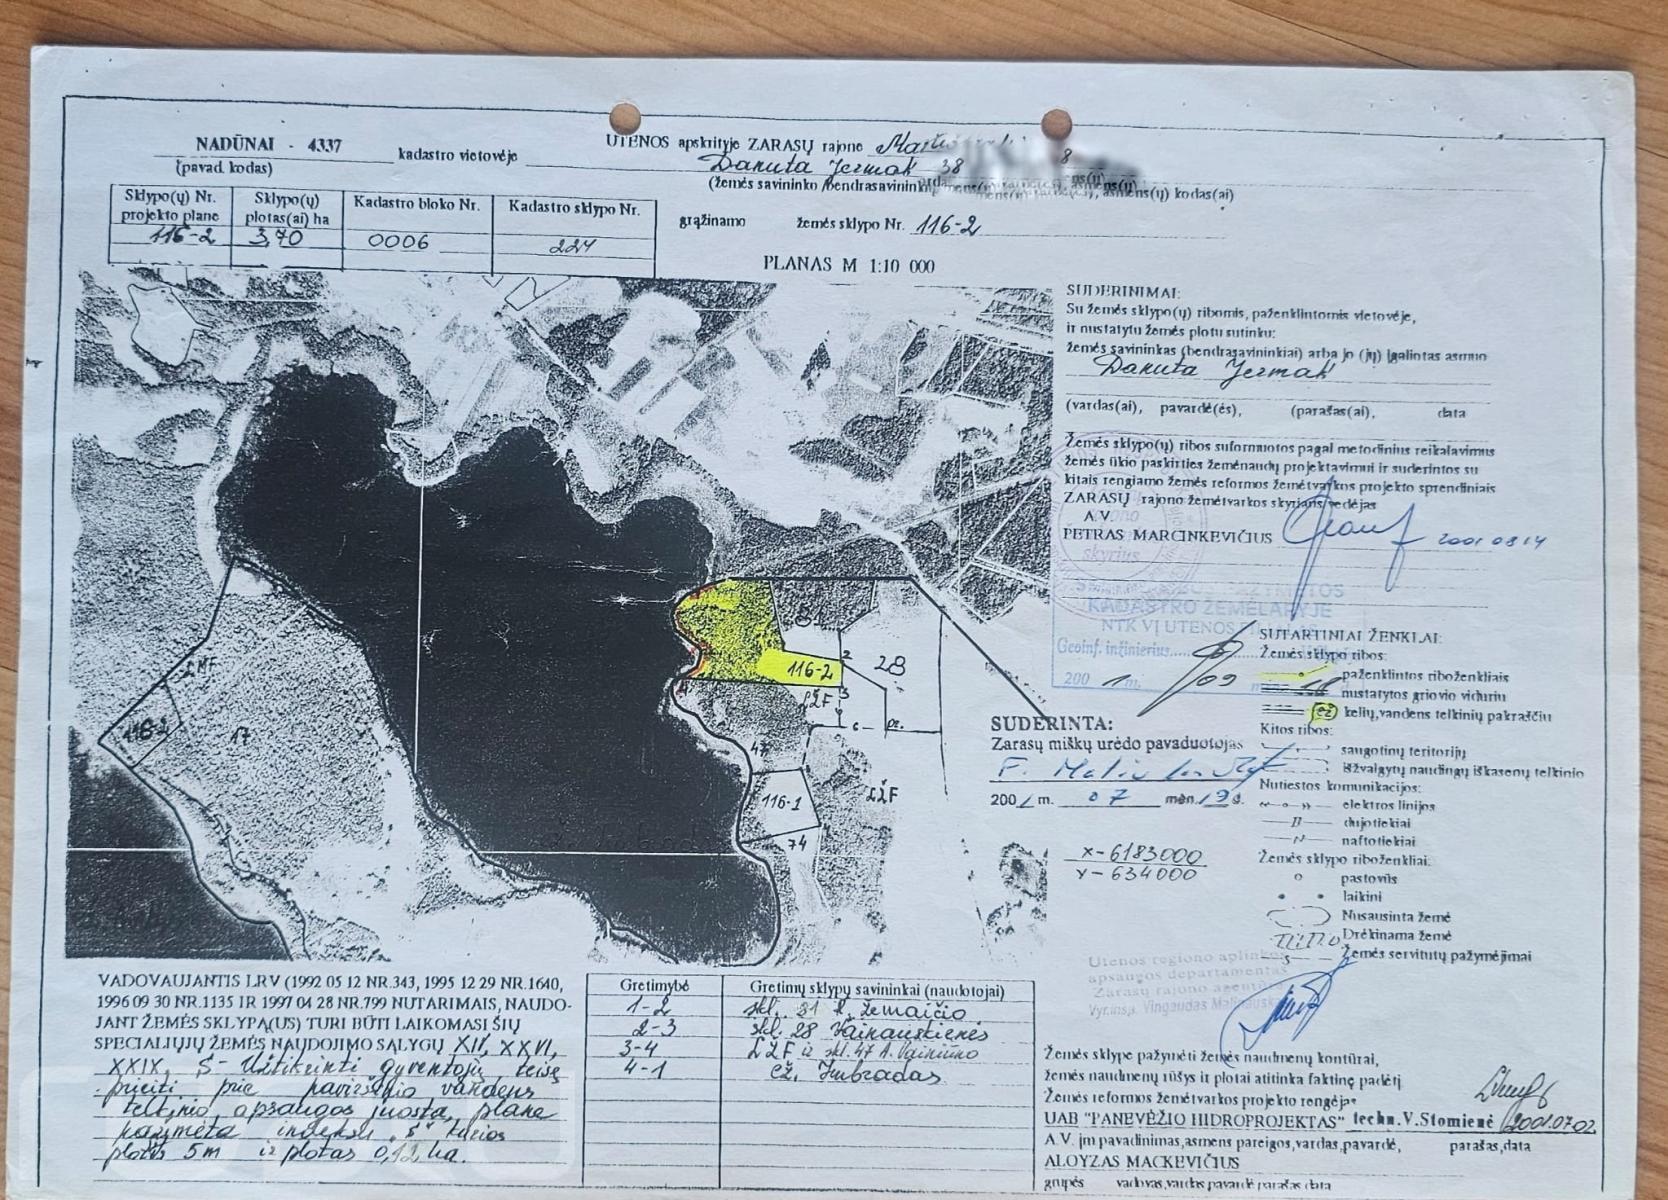 NADŪNAI - 4337 kadastro vietovėje UTENOS apskrityje ZARASŲ rajone
(pavad. kodas)
Danuta Jermak 38 8
(žemės savininko /bendrasavininkių asmens(ų) kodas(ai)
Sklypo(ų) Nr. projekto plane Sklypo(ų) plotas(ai) ha Kadastro bloko Nr. Kadastro sklypo Nr.
116-2 3,70 0006 224
grąžinamo žemės sklypo Nr. 116-2
PLANAS M 1:10 000
2 MF
116-2
17
81
116-2
2
3
4
1
28
LŽF
c
47
116-1
LŽF
74
SUDERINIMAI:
Su žemės sklypo(ų) ribomis, paženklintomis vietovėje,
ir nustatytu žemės plotu sutinku:
žemės savininkas (bendrasavininkiai) arba jo (jų) įgaliotas asmuo
Danuta Jermak
(vardas(ai), pavardė(ės), (parašas(ai), data
Žemės sklypo(ų) ribos suformuotos pagal metodinius reikalavimus
žemės ūkio paskirties žemėnaudų projektavimui ir suderintos su
kitais rengiamo žemės reformos žemėtvarkos projekto sprendiniais
ZARASŲ rajono žemėtvarkos skyriaus vedėjas
A.V.
PETRAS MARCINKEVIČIUS 2001 08 14
skyrius
KADASTRO ŽEMĖLAPYJE
NTK VĮ UTENOS FILIALAS
Geoinf. inžinierius
200 1 m. 09 m
SUDERINTA:
Zarasų miškų urėdo pavaduotojas
2001 m. 07 mėn. 19 d.
x-6183000
Y-634000
SUTARTINIAI ŽENKLAI:
Žemės sklypo ribos:
paženklintos riboženkliais
nustatytos griovio viduriu
ež kelių,vandens telkinių pakraščiu
Kitos ribos:
saugotinų teritorijų
išžvalgytų naudingų iškasenų telkinio
Nutiestos komunikacijos:
elektros linijos
dujotiekiai
naftotiekiai
Žemės sklypo riboženkliai:
pastovūs
laikini
Nusausinta žemė
Drėkinama žemė
Žemės servitutų pažymėjimai
Utenos regiono aplinkos
apsaugos departamentas
Zarasų rajono agentūra
Vyr.insp. Vingaudas Malinauskas
VADOVAUJANTIS LRV (1992 05 12 NR.343, 1995 12 29 NR.1640,
1996 09 30 NR.1135 IR 1997 04 28 NR.799 NUTARIMAIS, NAUDO-
JANT ŽEMĖS SKLYPĄ(US) TURI BŪTI LAIKOMASI ŠIŲ
SPECIALIŲJŲ ŽEMĖS NAUDOJIMO SĄLYGŲ XII, XXVI,
XXIX, Š- Užtikrinti gyventojų teisę
prieiti prie paviršinio vandens
telkinio, apsaugos juosta, plane
pažymėta indeksu „Š“ kurios
plotis 5m ir plotas 0,12 ha.
Gretimybė Gretimų sklypų savininkai (naudotojai)
1-2 skl. 81 R. Žemaičio
2-3 skl. 28 Vainauskienės
3-4 LŽF ir skl. 47 A. Vainiūno
4-1 ež. Imbradas
Žemės sklype pažymėti žemės naudmenų kontūrai,
žemės naudmenų rūšys ir plotai atitinka faktinę padėtį
Žemės reformos žemėtvarkos projekto rengėjas
UAB "PANEVĖŽIO HIDROPROJEKTAS" techn.V.Stomienė 2001.07.02.
A.V. įm pavadinimas,asmens pareigos,vardas,pavardė, parašas,data
ALOYZAS MACKEVIČIUS
grupės vadovas,vardas pavardė parašas data